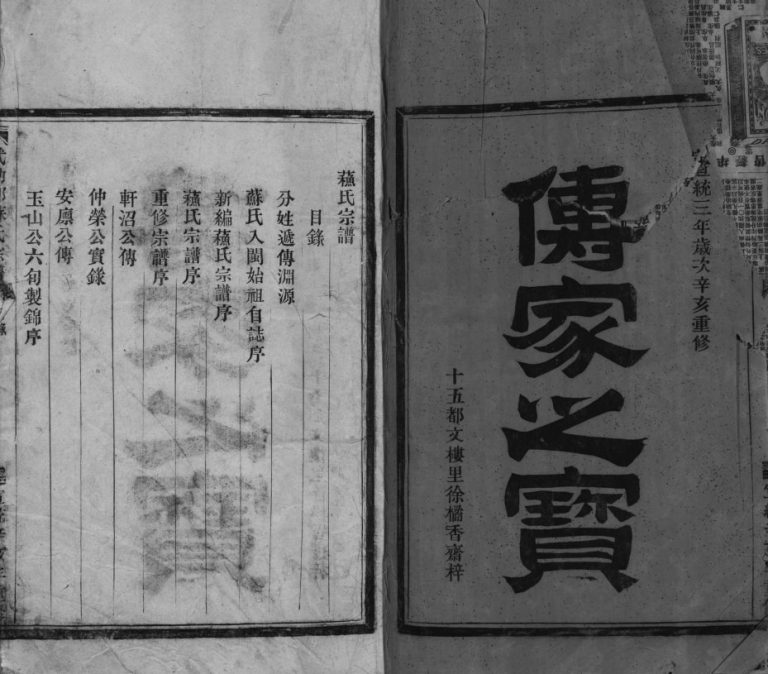 宣統三年歲次辛亥重修
傳家之寶
十五都文樓里徐橘香齋梓
蘓氏宗譜
目錄
分姓遞傳淵源
蘇氏入閩始祖自誌序
新編蘓氏宗譜序
蘓氏宗譜序
重修宗譜序
軒沼公傳
仲榮公實錄
安廪公傳
玉山公六旬製錦序